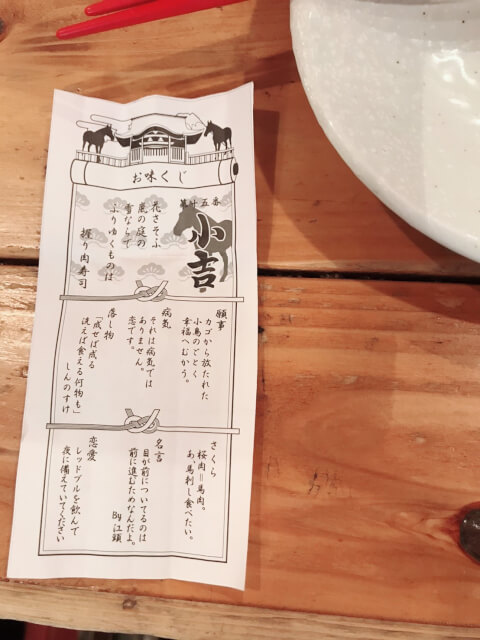 お味くじ
第十五番
小吉
花さそふ
嵐の庭の
雪ならで
ふりゆくものは
握り肉寿司
願事
カゴから放たれた
小鳥のごとく
幸福へむかう。
病気
それは病気では
ありません。
恋です。
落し物
「成せば成る
洗えば食える何物も」
しんのすけ
さくら
桜肉=馬肉。
あ、馬刺し食べたい。
名言
目が前についてるのは
前に進むためなんだよ。
By江頭
恋愛
レッドブルを飲んで
夜に備えていてください